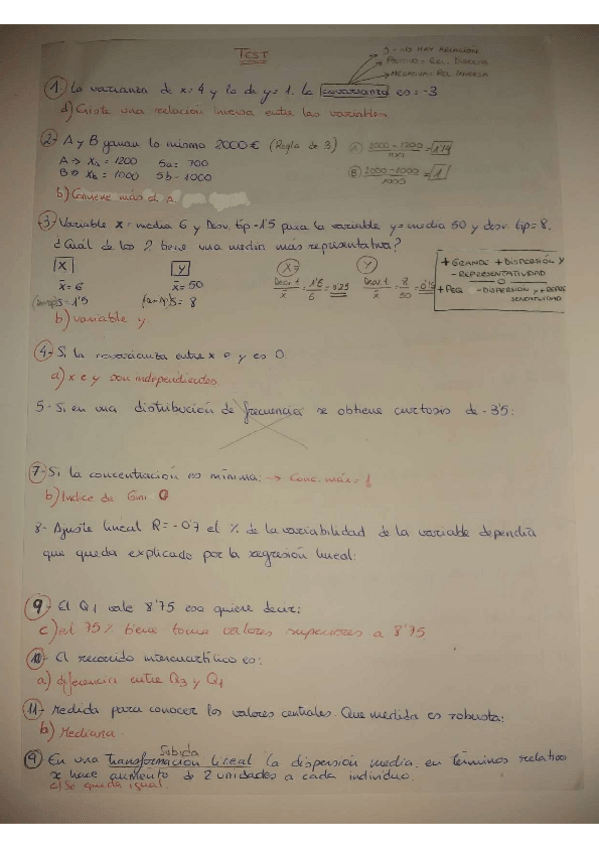 TEST
0 - NO HAY RELACIÓN
POSITIVO = REL. DIRECTA
NEGATIVO: REL. INVERSA
1- La varianza de x=4 y la de y=1. La covarianza es = -3
d) Existe una relación inversa entre las variables
2- A y B ganan lo mismo 2000€ (Regla de 3)
A → XA = 1200 Sa = 700
B → Xb = 1000 Sb = 1000
A 2000-1200/700 = 1'14
B 2000-1000/1000 = 1
b) Conviene más el A.
3- Variable x = media 6 y Desv. tip = 1'5 para la variable y = media 50 y desv. tip = 8.
¿Cuál de las 2 tiene una media más representativa?
X Y
x̄ = 6 x̄ = 50
S = 1'5 S = 8
X = Desv.t/x̄ = 1'5/6 = 0'25
Y Desv.t/x̄ = 8/50 = 0'16
+ GRANDE + DISPERSIÓN Y
- REPRESENTATIVIDAD
O
+ PEQ - DISPERSIÓN y + REPRE
SENTATIVIDAD
b) Variable y.
4- Si la covarianza entre x e y es 0
a) x e y son independientes.
5- Si en una distribución de frecuencias se obtiene curtosis de -3'5:
7- Si la concentración es mínima: → Conc. máx = 1
b) Indice de Gini 0
8- Ajuste lineal R = -0'7 el % de la variabilidad de la variable dependia
que queda explicado por la regresión lineal:
9- El Q1 vale 8'75 eso quiere decir:
c) el 75% tiene toma valores superiores a 8'75
10- El recorrido intercuartílico es:
a) diferencia entre Q3 y Q1
11- Medida para conocer los valores centrales. Que medida es robusta:
b) Mediana
Subida
9) En una transformación lineal la dispersión media, en términos relativos
se hace aumento de 2 unidades a cada individuo.
c) Se queda igual.